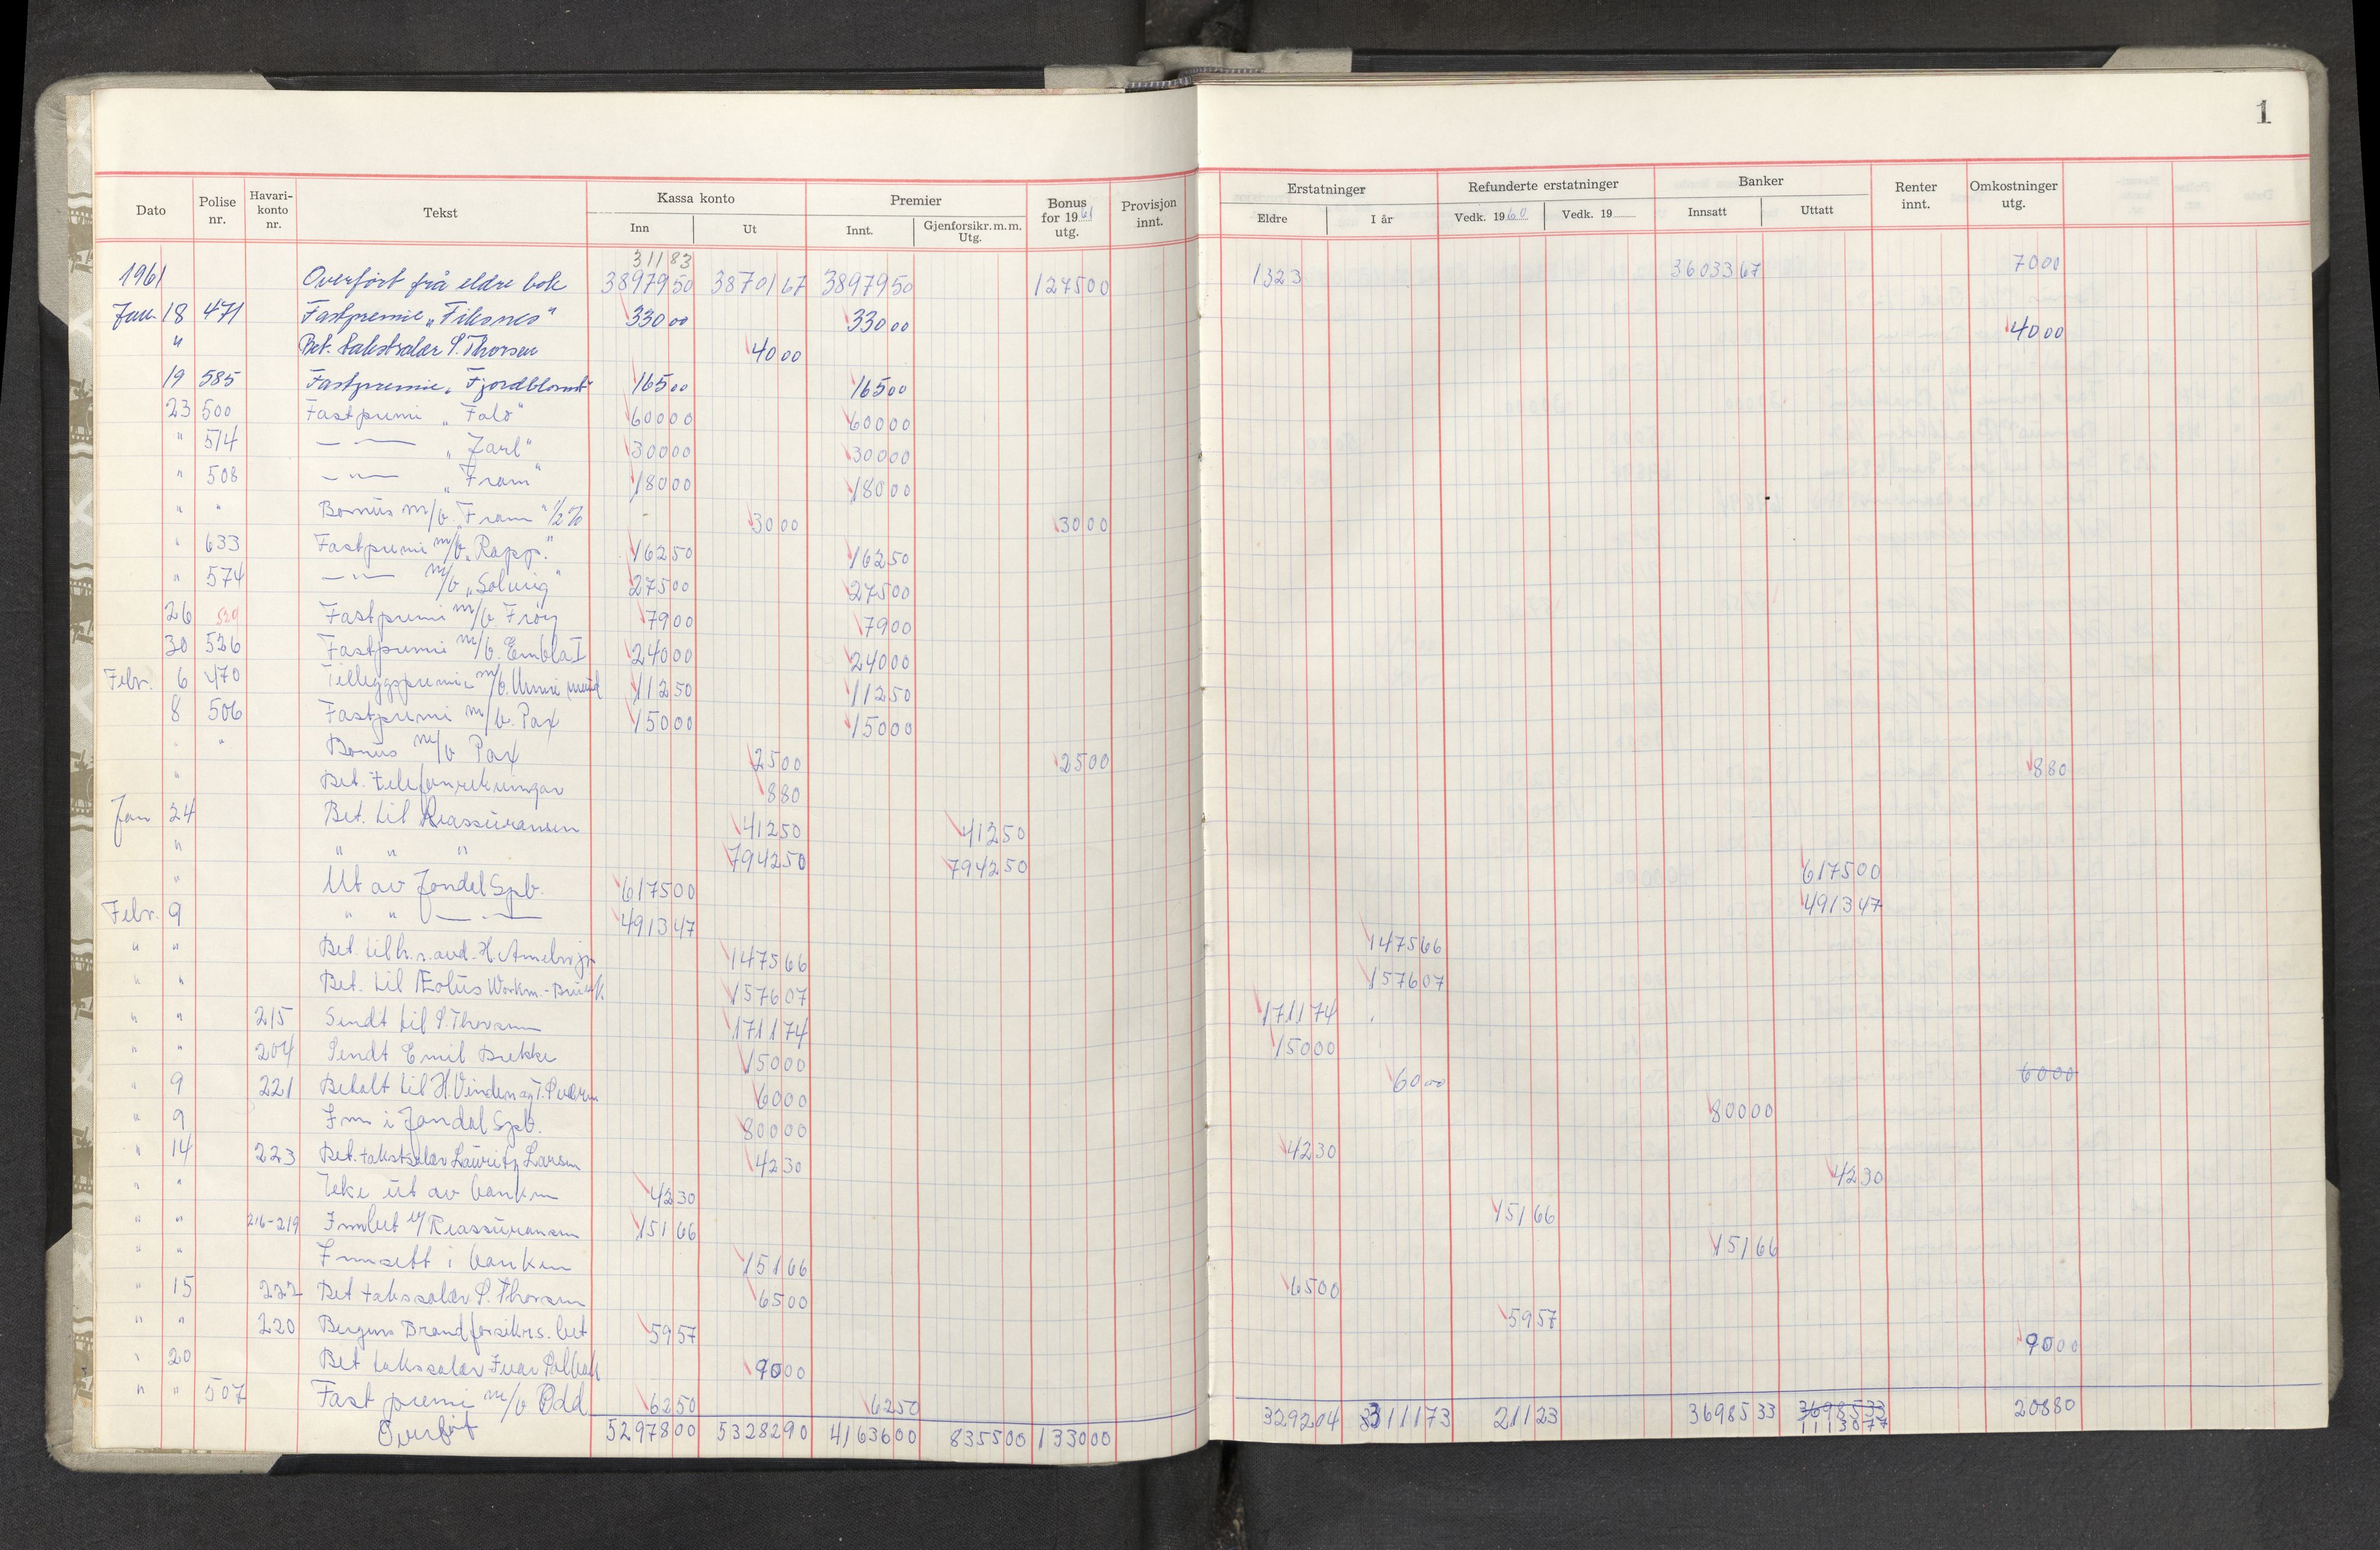 1
Dato Polise nr. Havari-konto nr. Tekst Kassa konto Inn Ut Premier Innt. Gjenforsikr. m. m. Utg. Bonus for 1961 utg. Provisjon innt. Erstatninger Eldre I år Refunderte erstatninger Vedk. 1960 Vedk. 19 Banker Innsatt Uttatt Renter innt. Omkostninger utg.
31183
1961 Overført frå eldre bok 3897950 3870167 3897950 127500 1323 3603367 7000
Jan 18 471 Fastpremie „Fiksnes" 33000 33000
" Bet. takstsalær S. Thorsen 4000 4000
19 585 Fastpremie „Fjordblomst" 16500 16500
23 500 Fastpremi „Falo" 60000 60000
" 514 — " — „Jarl" 30000 30000
" 508 — " — „Fram" 18000 18000
" " Bonus m/b „Fram" 1/2% - 3000 3000
" 633 Fastpremi m/b „Rapp." 16250 16250
" 574 — " — m/b „Solveig" 27500 27500
26 529 Fastpremi m/b Frøy 7900 7900
30 526 Fastpremi m/b. Embla I 24000 24000
Febr. 6 470 Tilleggspremie m/b. 11250 11250
8 506 Fastpremi m/b. Pax 15000 15000
" " Bonus m/b Pax 2500 2500
" Bet. telefonrekningar 880 880
Jan 24 Bet. til Reassuransen 41250 41250
" " " " 794250 794250
" Ut av Jondal Spb. 617500 617500
Febr. 9 " " — " — 491347 491347
" " Bet. til h.r.adv. H. 147566 147566
" " Bet. til Æolus Workm. 157607 157607
" " 215 Sendt til S. Thorsen 171174 171174
" " 204 Sendt Emil Brekke 15000 15000
" 9 221 Betalt til H. Vinden og T. 6000 6000 6000
" 9 Inn i Jondal Spb. 80000 80000
" 14 223 Bet. takstsalær Lauritz Larsen 4230 4230
" " Teke ut av banken 4230 4230
" " 216-219 Innbet av Reassuransen 15166 15166
" " Innsett i banken 15166 15166
" 15 222 Bet takssalær S. Thorsen 6500 6500
" " 220 Bergens Brandforsikrs. bet 5957 5957
" 20 Bet takssalær Ivar 9000 9000
" " 507 Fast premi m/b Odd 6250 6250
Overført 5297800 5328290 4163600 835500 133000 329204 311173 21123 3698533 3698533 20880
1113077